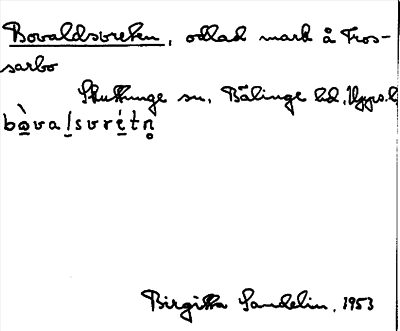 Bovaldsvreten, odlad mark å Fros-
sarbo
Skuttunge sn, Bälinge hd, Upps. l
bòvaḷsvrétn̥
Birgitta Sandelin, 1953